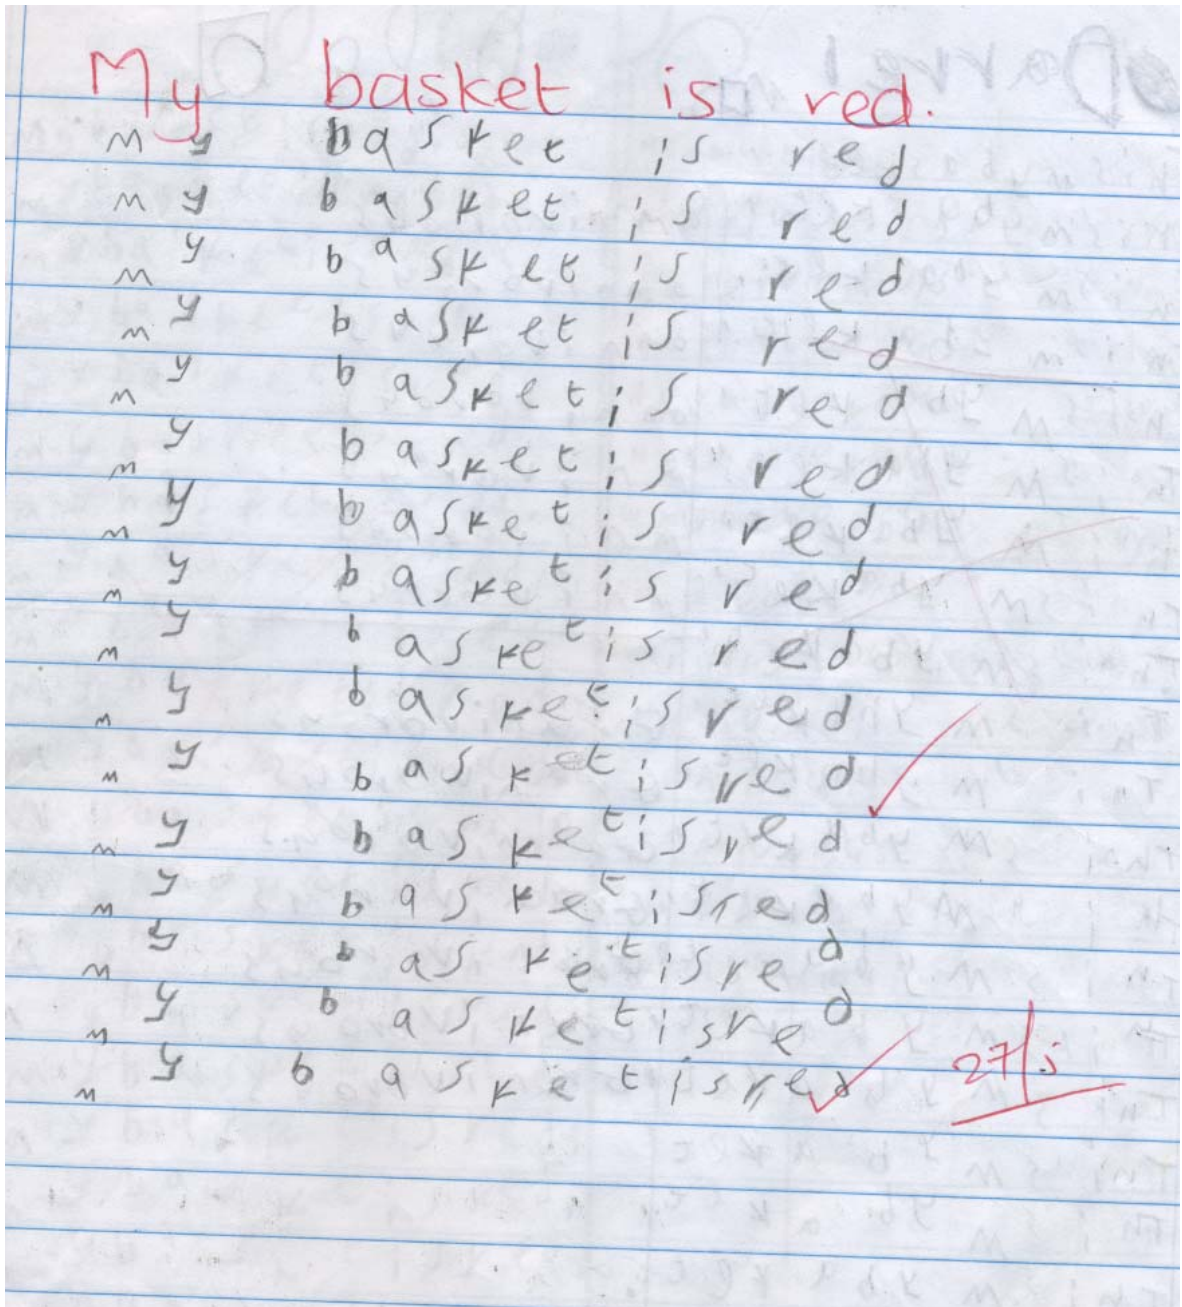 My basket is red.
my basket is red
my basket is red
my basket is red
my basket is red
my basket is red
my basket is red
my basket is red
my basket is red
my basket is red
my basket is red
my basket is red
my basket is red
my basket is red
my basket is red
my basket is red
my basket is red